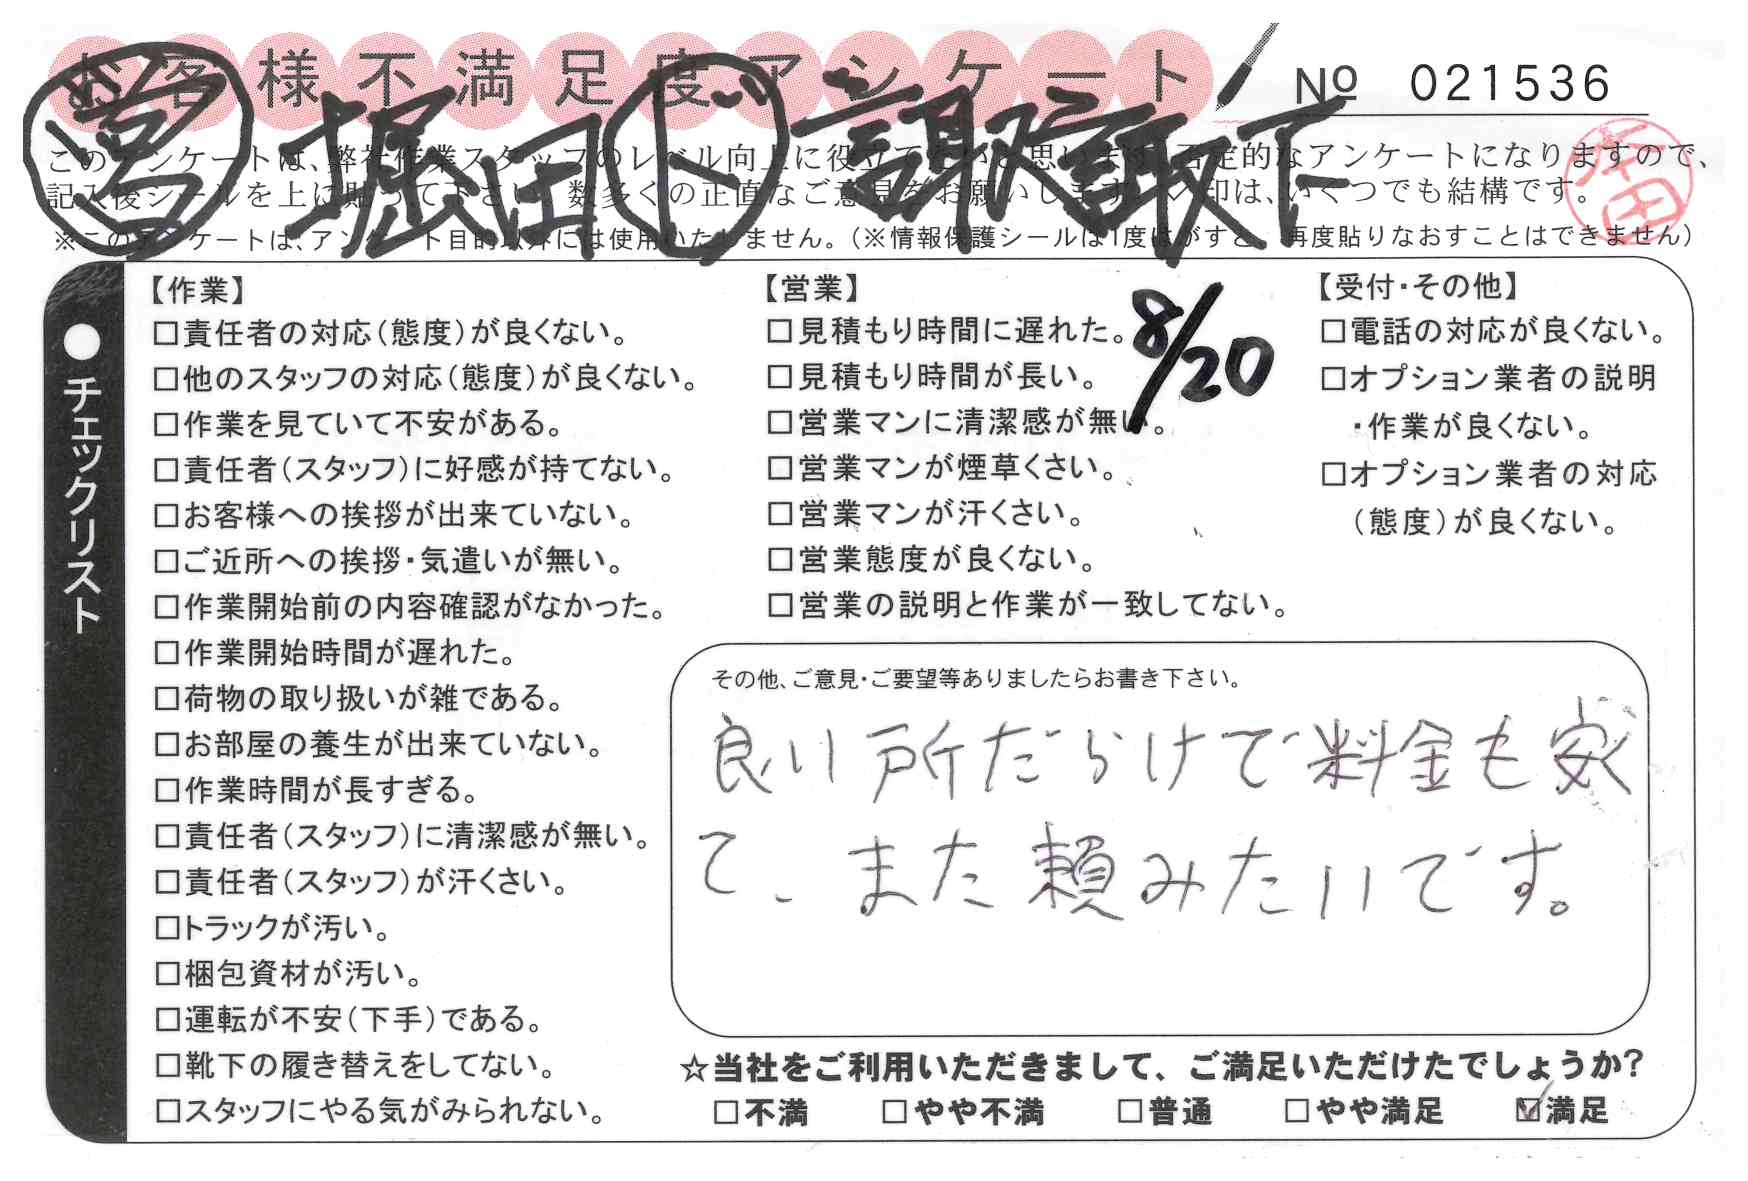 お客様不満足度アンケート
No 021536
営 堀田 ド
このアンケートは、弊社作業スタッフのレベル向上に役立てたいと思います。否定的なアンケートになりますので、
記入後シールを上に貼って下さい。数多くの正直なご意見をお願いします。✓印は、いくつでも結構です。
※このアンケートは、アンケート目的以外には使用いたしません。(※情報保護シールは1度はがすと、再度貼りなおすことはできません)
●チェックリスト
【作業】
□責任者の対応(態度)が良くない。
□他のスタッフの対応(態度)が良くない。
□作業を見ていて不安がある。
□責任者(スタッフ)に好感が持てない。
□お客様への挨拶が出来ていない。
□ご近所への挨拶・気遣いが無い。
□作業開始前の内容確認がなかった。
□作業開始時間が遅れた。
□荷物の取り扱いが雑である。
□お部屋の養生が出来ていない。
□作業時間が長すぎる。
□責任者(スタッフ)に清潔感が無い。
□責任者(スタッフ)が汗くさい。
□トラックが汚い。
□梱包資材が汚い。
□運転が不安(下手)である。
□靴下の履き替えをしてない。
□スタッフにやる気がみられない。
【営業】
□見積もり時間に遅れた。
□見積もり時間が長い。
□営業マンに清潔感が無い。
□営業マンが煙草くさい。
□営業マンが汗くさい。
□営業態度が良くない。
□営業の説明と作業が一致してない。
8/20
【受付・その他】
□電話の対応が良くない。
□オプション業者の説明
・作業が良くない。
□オプション業者の対応
(態度)が良くない。
その他、ご意見・ご要望等ありましたらお書き下さい。
良い所だらけで料金も安く
て、また頼みたいです。
☆当社をご利用いただきまして、ご満足いただけたでしょうか?
□不満 □やや不満 □普通 □やや満足 ☑満足